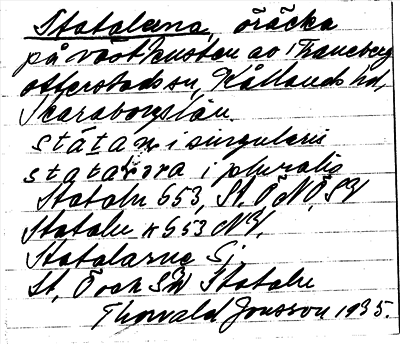 Statalerna, öräcka
på västkusten av Traneberg
Otterstads sn, Kållands hd,
Skaraborgs län.
i singularis
i pluralis
Statalu G53, St, Ö NÖ, SV
Statalu h G53 NV,
Statalarne Sj.
St, Ö och SV Statalu
Thorvald Jonsson 1935.